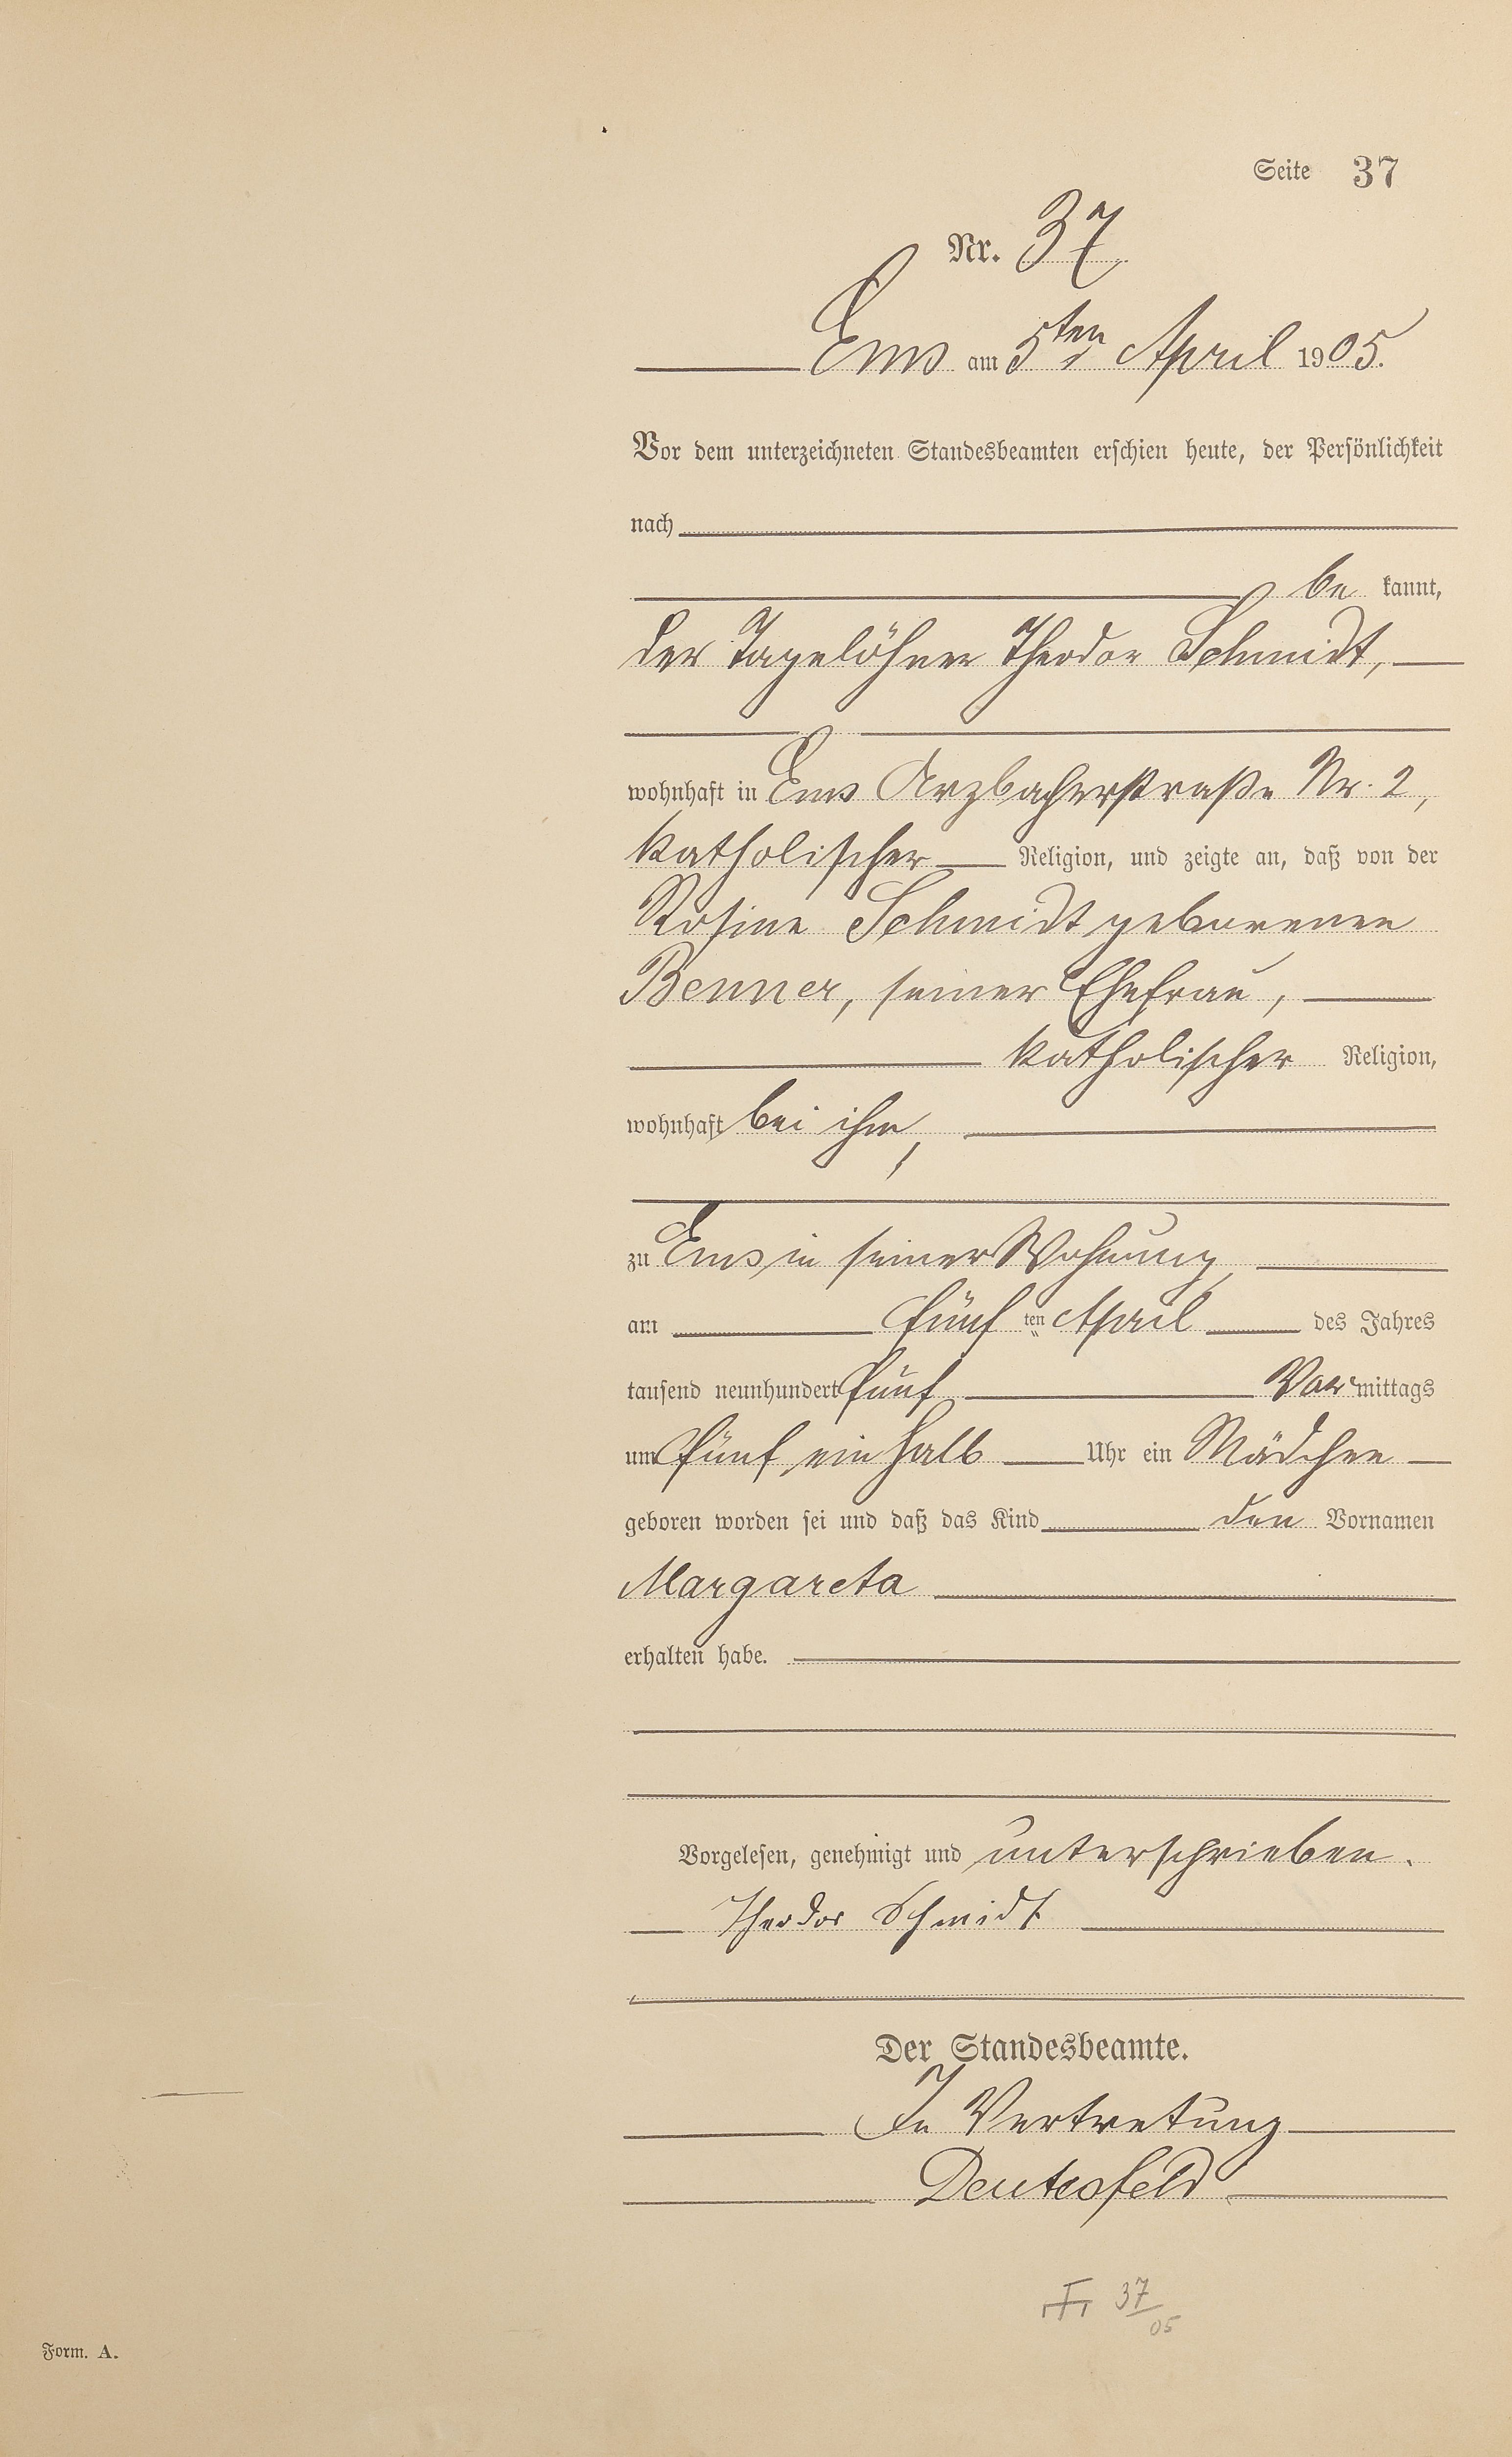 Seite 37
Nr. 37
Ems am 5ten April 1905.
Vor dem unterzeichneten Standesbeamten erschien heute, der Persönlichkeit
nach
be kannt,
der Tagelöhner Theodor Schmidt,
wohnhaft in Ems Arzbacherstraße Nr. 2,
katholischer Religion, und zeigte an, daß von der
Rosine Schmidt geborenen
Benner, seiner Ehefrau,
katholischer Religion,
wohnhaft bei ihm,
zu Ems in seiner Wohnung
am fünf ten April des Jahres
tausend neunhundert fünf Vormittags
um fünf ein halb Uhr ein Mädchen
geboren worden sei und daß das Kind den Vornamen
Margareta
erhalten habe.
Vorgelesen, genehmigt und unterschrieben.
Theodor Schmidt
Der Standesbeamte.
In Vertretung
37
05
Form. A.